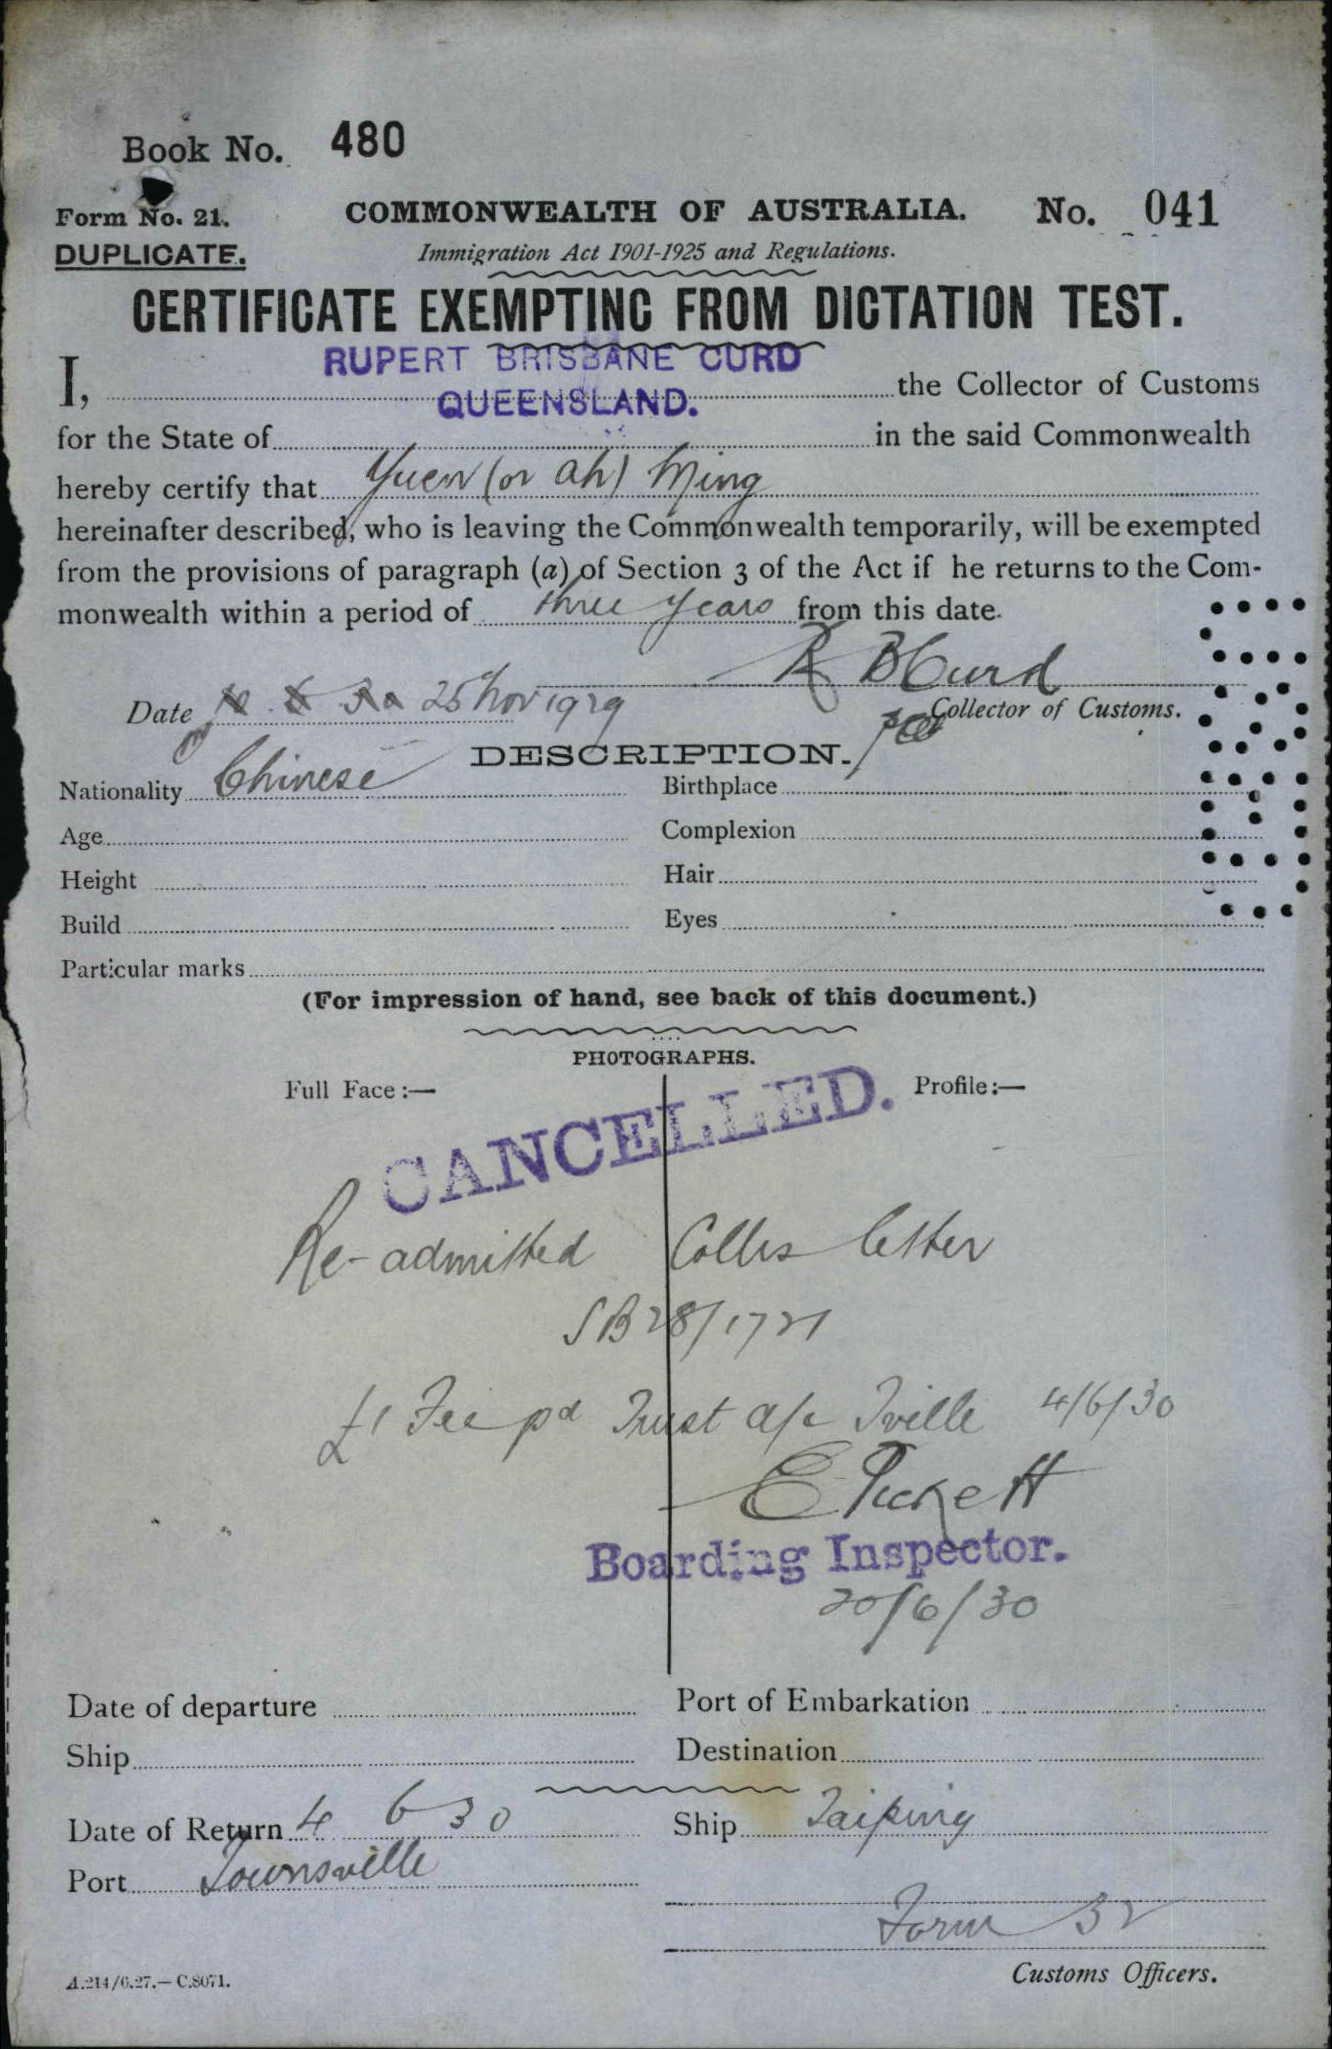 Book No. 480
Form No. 21.
COMMONWEALTH OF AUSTRALIA. No. 041
DUPLICATE.
Immigration Act 1901-1925 and Regulations.
CERTIFICATE EXEMPTING FROM DICTATION TEST.
RUPERT BRISBANE CURD
I, the Collector of Customs
QUEENSLAND.
for the State of in the said Commonwealth
hereby certify that Yuen (or Ah) Ming
hereinafter described, who is leaving the Commonwealth temporarily, will be exempted
from the provisions of paragraph (a) of Section 3 of the Act if he returns to the Com-
monwealth within a period of three years from this date.
R B Curd
Date 25 Nov 1929
Collector of Customs.
DESCRIPTION.
Nationality Chinese Birthplace
Age Complexion
Height Hair
Build Eyes
Particular marks
(For impression of hand, see back of this document.)
PHOTOGRAPHS.
Full Face:— Profile:—
CANCELLED.
Re-admitted Collrs letter
SB 28/1721
£1 Fee pd Trust a/c Tville 4/6/30
E Pickett
Boarding Inspector.
20/6/30
Date of departure Port of Embarkation
Ship Destination
Date of Return 4 6 30 Ship Taiping
Port Townsville
Form 32
A.214/6.27.—C.8071.
Customs Officers.